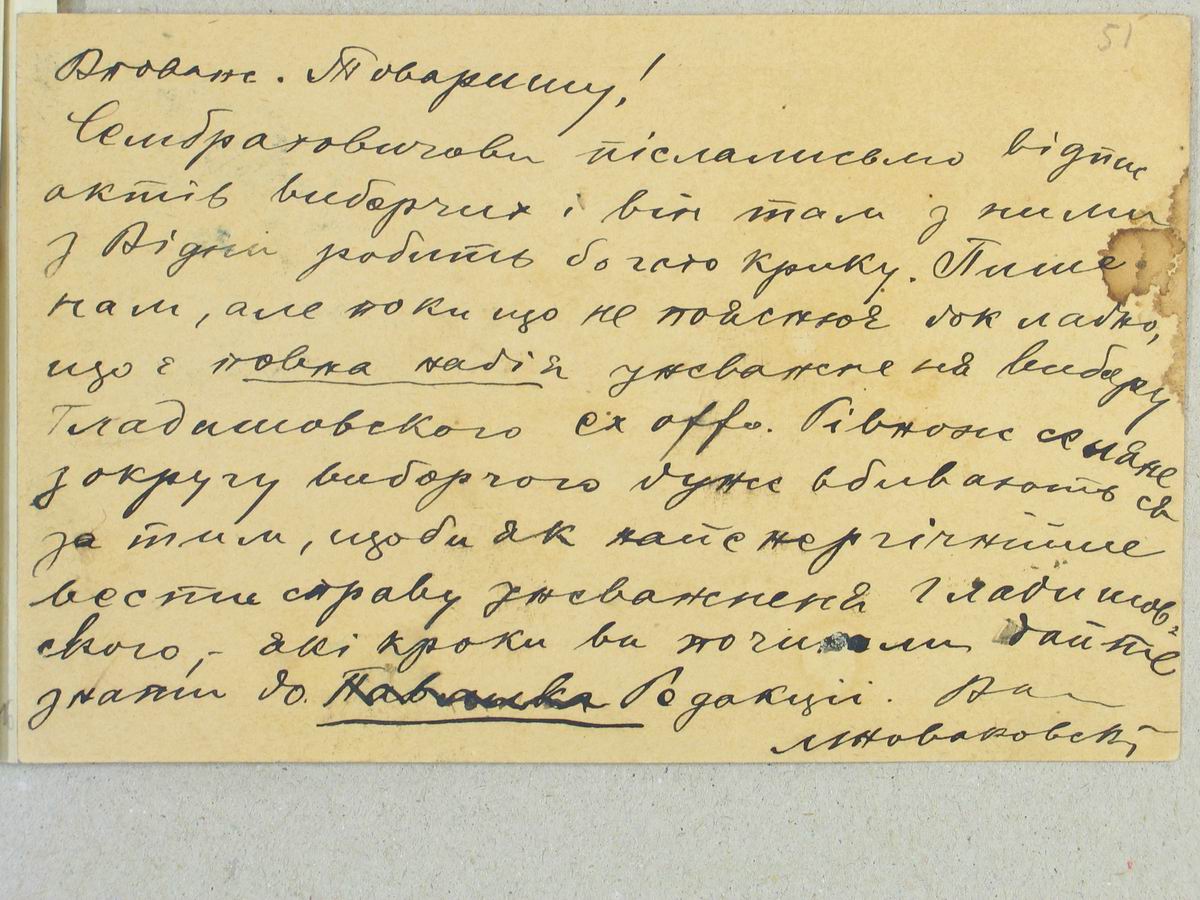 51
Вповаж. Товаришу!
Сембратовичови післалисьмо відпис
актів виборчих і він там з ними
з Відни робить богато крику. Пише
нам, але поки що не пояснює докладно,
що є повна надія уневажненя вибору
Гладишовского ex offo. Рівнож селяне
з округу виборчого дуже вбивають ся
за тим, щоби як найенергічнійше
вести справу уневажненя Гладишов-
ского, - які кроки ви починали дайте
знати до. Павлика Редакциї. Ваш
МНоваковский